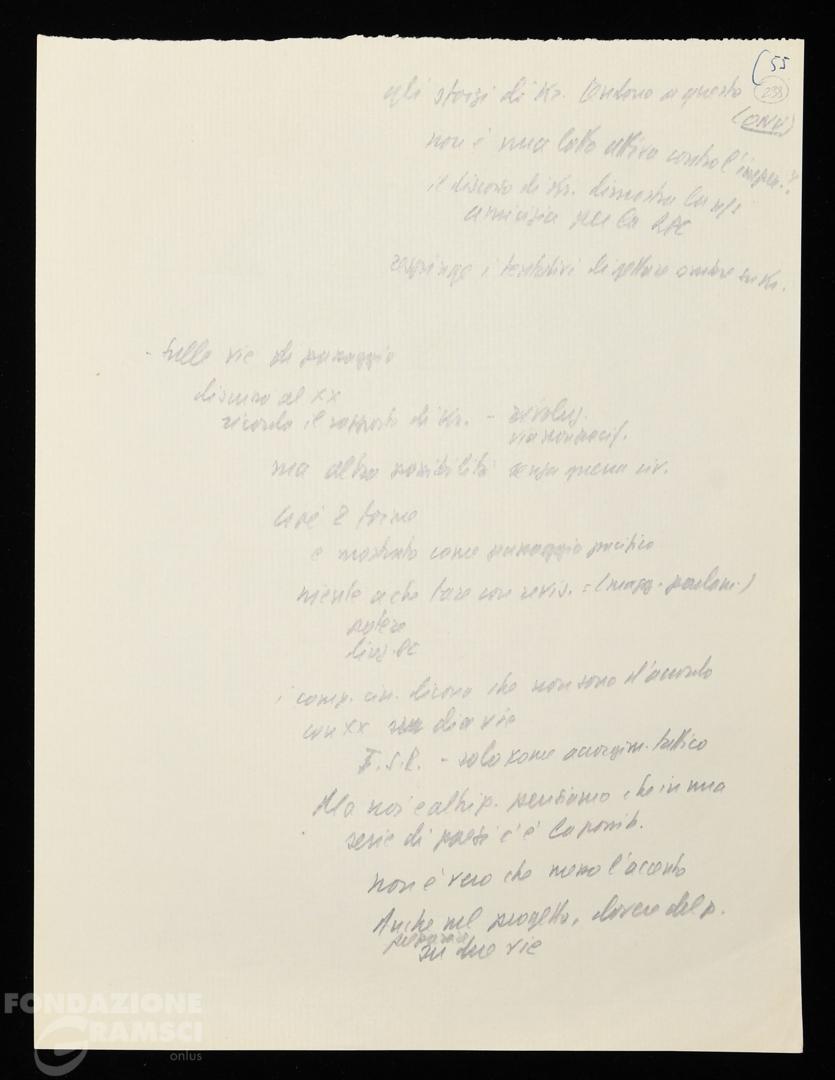 (55
233
gli sforzi di Kr. tendono a questo
(ONU)
non è una lotta attiva contro l'imper.?
il discorso di Kr. dimostra la ns/
amicizia per la RPC
respinge i tentativi di gettare ombre su Kr.
- sulle vie di passaggio
discusso al XX
ricorda il rapporto di Kr. - rivoluz.
via non pacif.
ma altra possibilità senza guerra civ.
cioè 2 forme
è mostrato come passaggio pacifico
niente a che fare con revis. = (magg. parlam.)
potere
diez. PC
i comp. cin. dicono che non sono d'accordo
con XX su due vie
solo come accorgim. tattico
Ma noi e altri p. pensiamo che in una
serie di paesi c'è la possib.
non è vero che meno l'accento
Anche nel progetto, dovere del p.
prepararsi
su due vie
FONDAZIONE
GRAMSCI
onlus